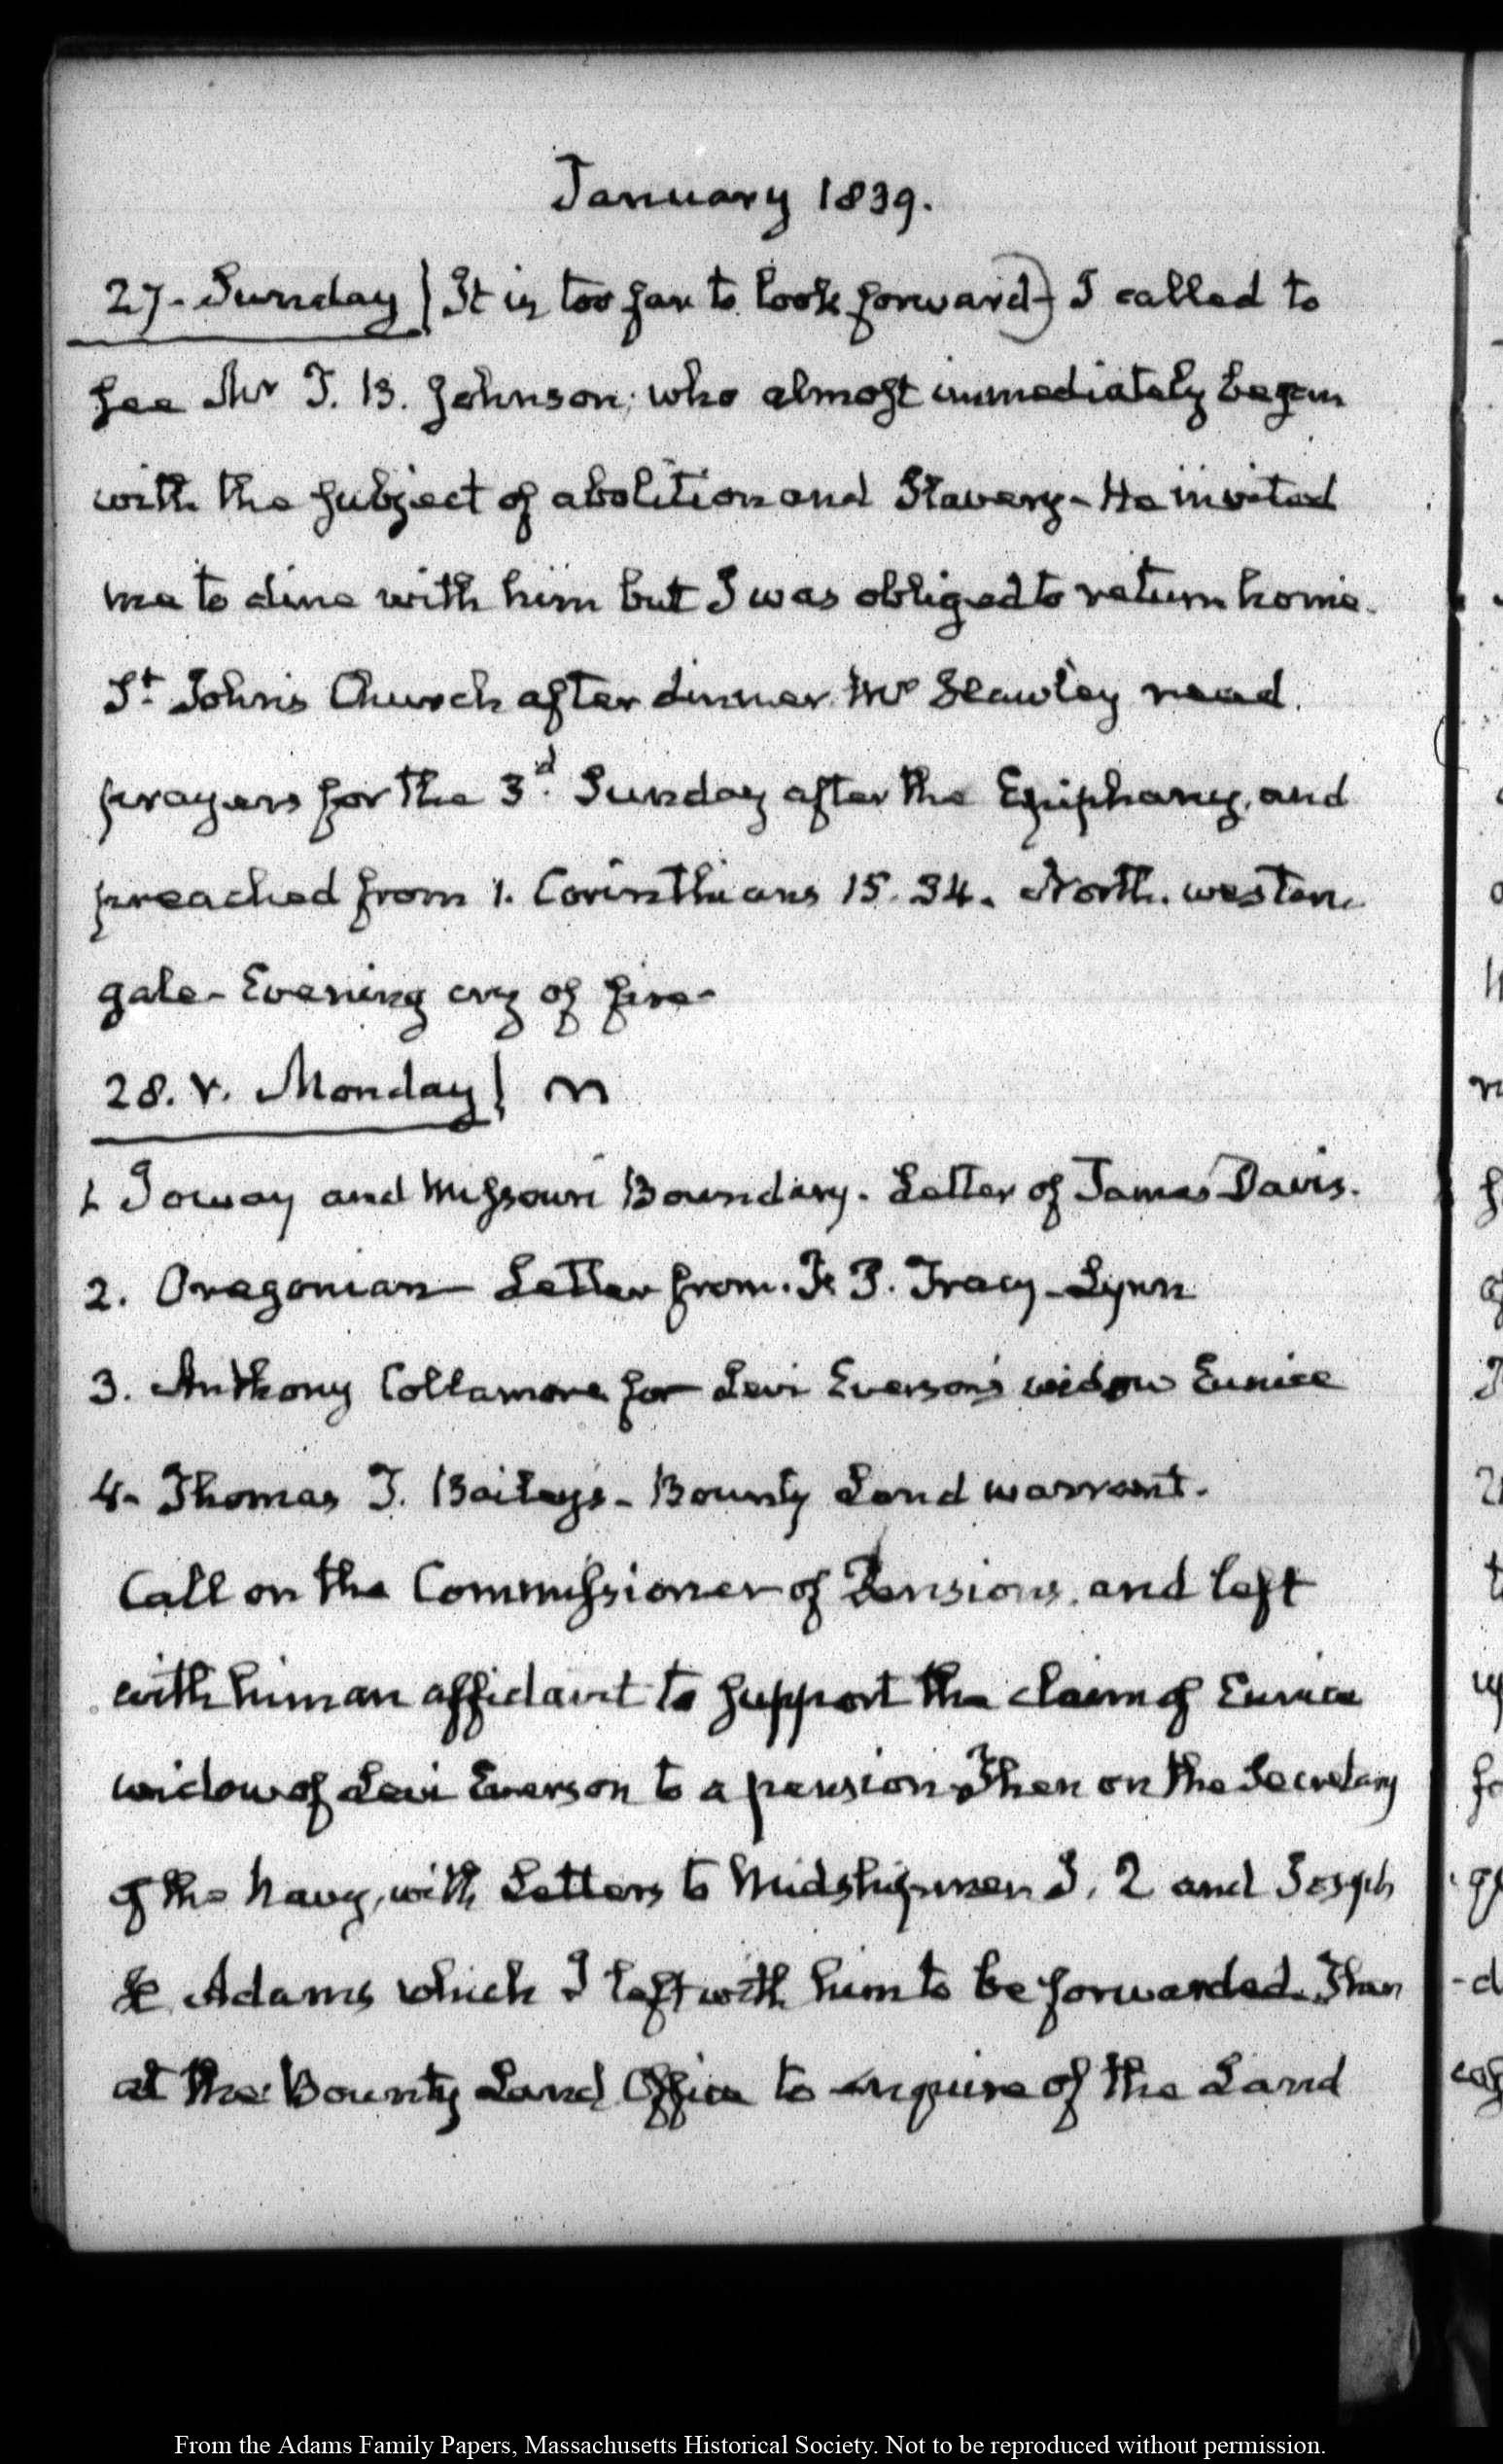 January 1839.
27. Sunday} It is too far to look forward-) I called to
see Mr T. B. Johnson; who almost immediately began
with the subject of abolition and Slavery- He invited
me to dine with him but I was obliged to return home.
St Johns Church after dinner. Mr Hawley read
prayers for the 3d. Sunday after the Epiphany, and
preached from 1. Corinthians 15. 34. North. western
gale- Evening cry of fire-
28. V. Monday}
1. Ioway and Missouri Boundary. Letter of James Davis.
2. Oregonian Letter from. F. P. Tracy- Lynn
3. Anthony Collamore for Levi Everson's widow Eunice
4- Thomas T. Bailey's- Bounty Land warrant.
Call on the Commissioner of Pensions, and left
with him an affidavit to support the claim of Eunice
widow of Levi Everson to a pension. Then on the Secretary
of the Navy, with Letters to Midshipmen J. Q and Joseph
H. Adams which I left with him to be forwarded. Then
at the Bounty Land Office to enquire of the Land
From the Adams Family Papers, Massachusetts Historical Society. Not to be reproduced without permission.